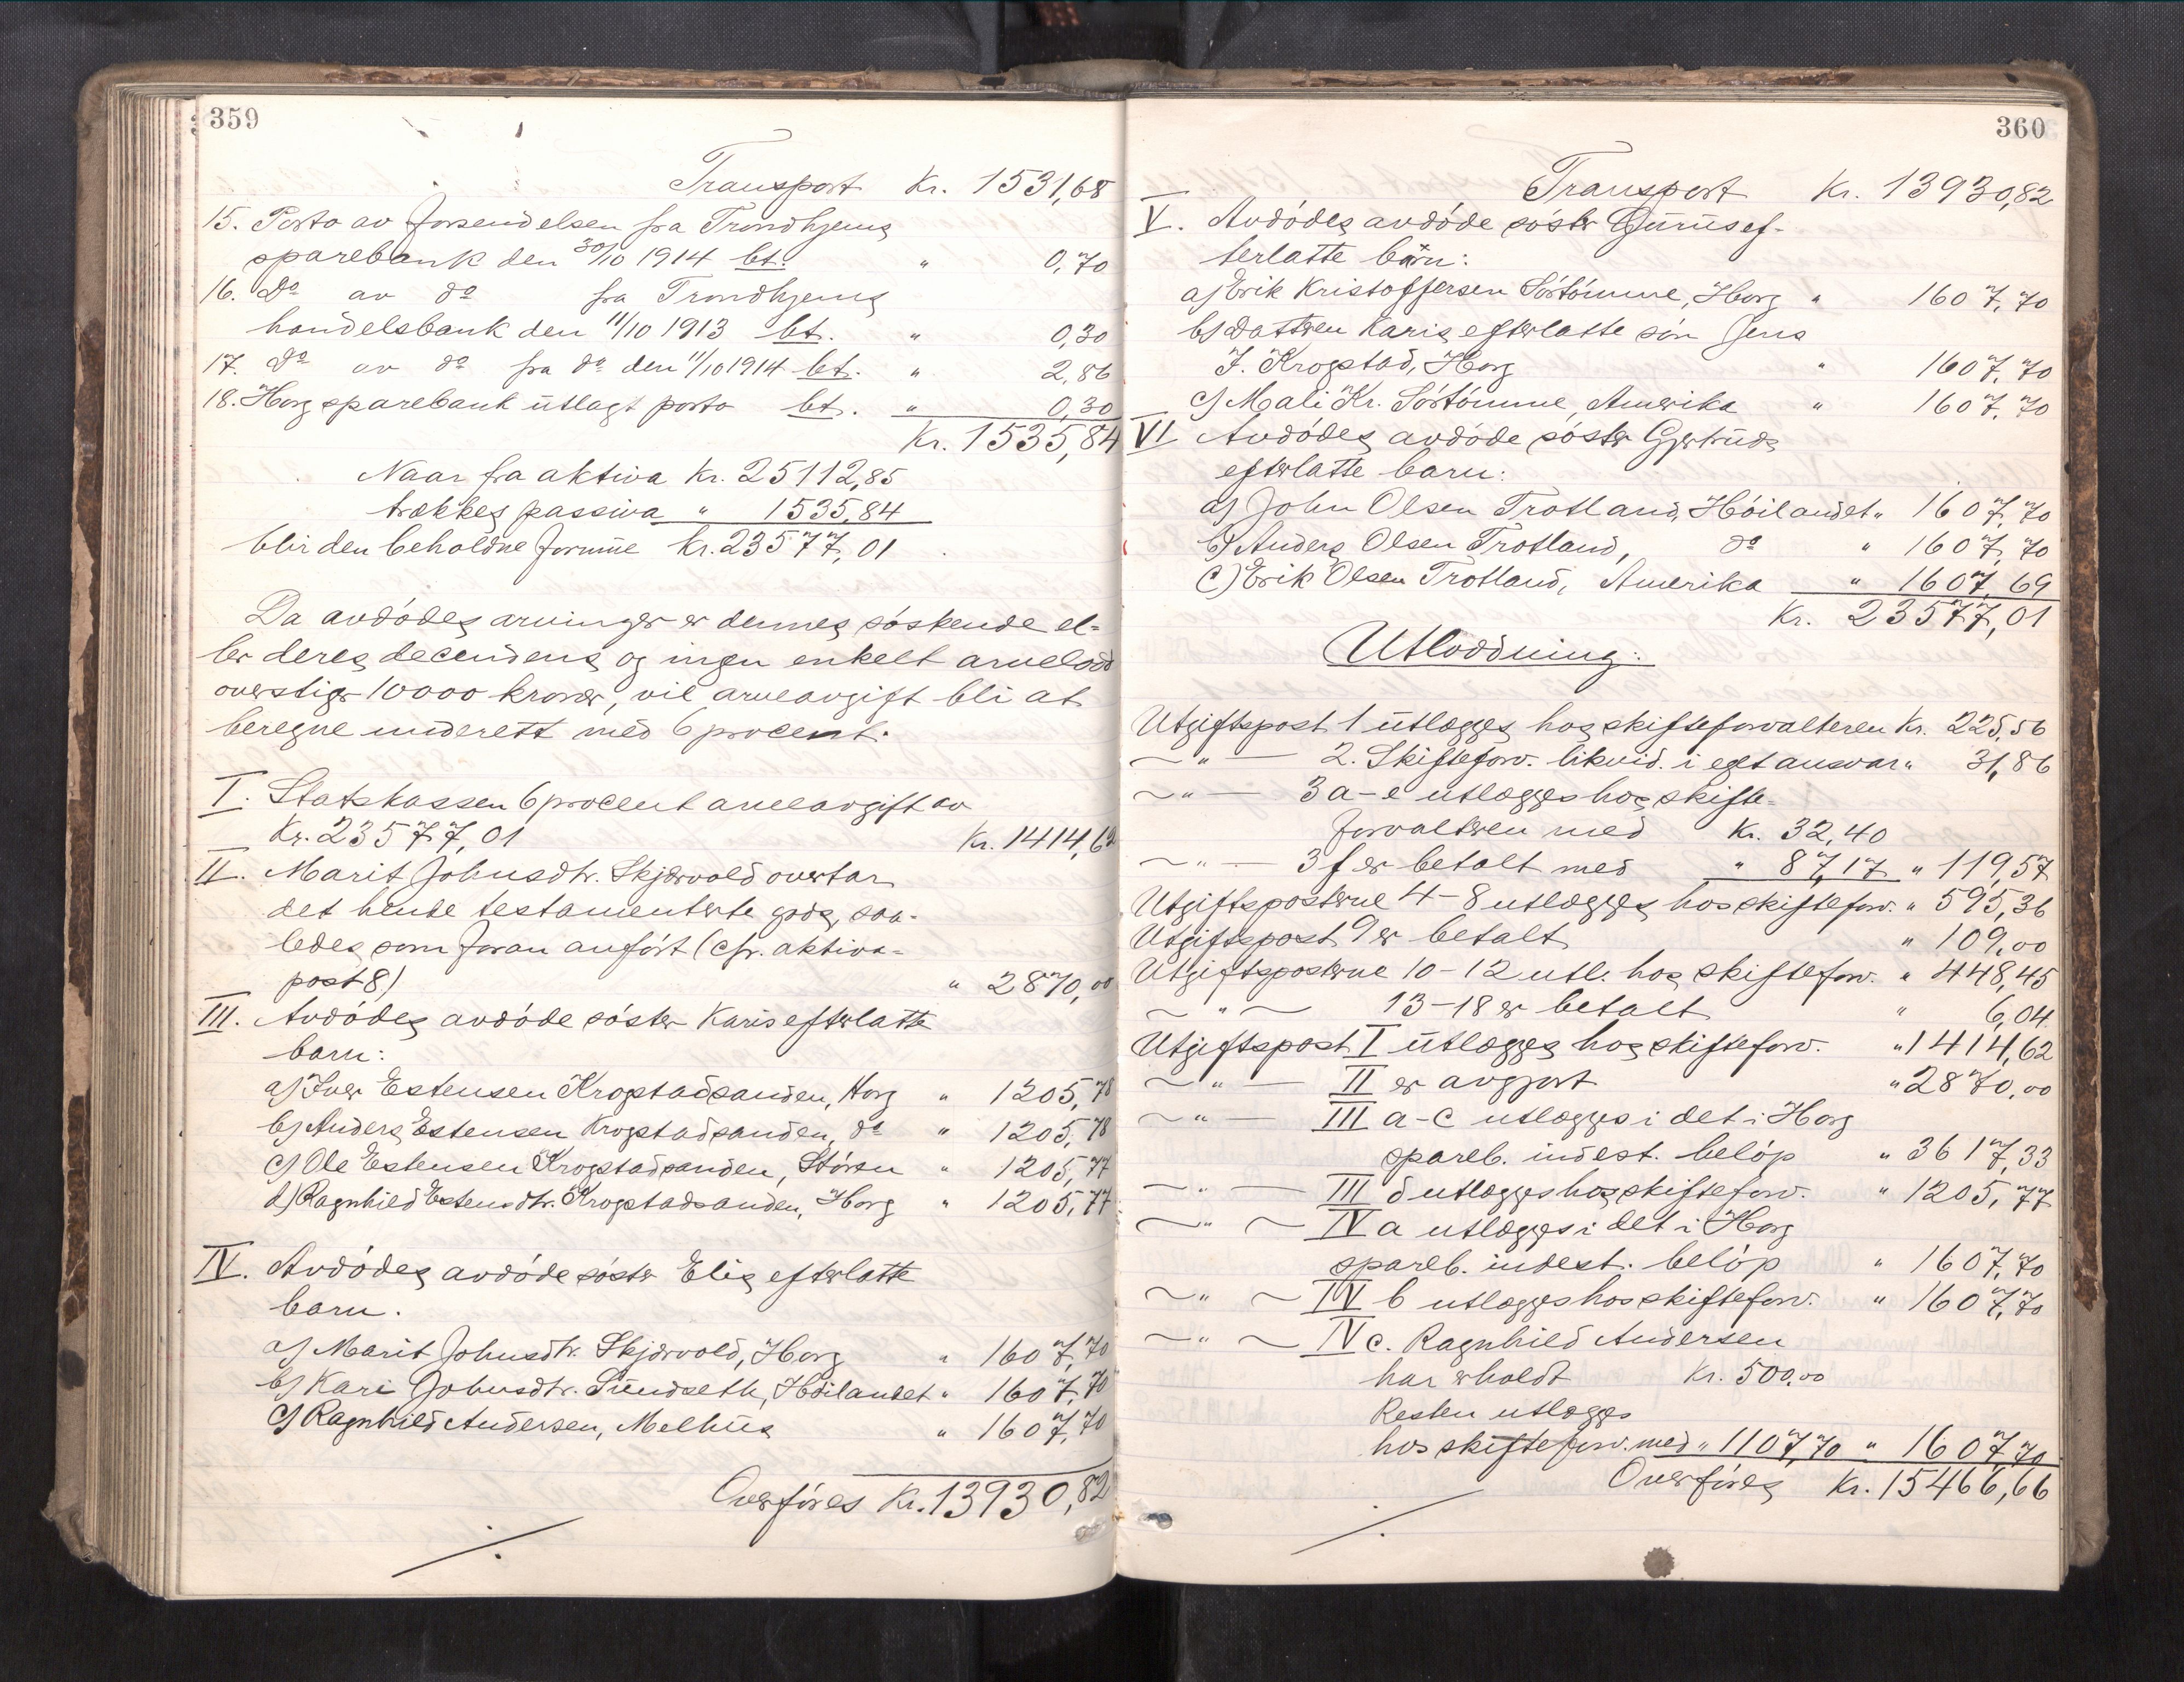 359
Transport Kr. 1531,68
15. Porto av forsendelsen fra Trondhjems
sparebank den 30/10 1914 bt. " 0,70
16. Do av do fra Trondhjems
handelsbank den 11/10 1913 bt. " 0,30
17. Do av do fra do den 11/10 1914 bt. " 2,86
18. Horg sparebank utlagt porto bt. " 0,30
Kr. 1535,84
Naar fra aktiva Kr. 25112,85
trækkes passiva " 1535,84
blir den beholdne formue Kr. 23577,01
Da avdødes arvinger er dennes søskende el-
ler deres decendens og ingen enkelt arvelodd
overstiger 10000 kroner, vil arveavgift bli at
beregne underett med 6 procent.
I. Statskassen 6 procent arveavgift av
Kr. 23577,01 Kr. 1414,62
II. Marit Johnsdtr. Skjærvold overtar
det hende testamenterte gods, saa-
ledes som foran anført (cfr. aktiva-
post 8) " 2870,00
III. Avdødes avdøde søster Karis efterlatte
barn:
a) Iver Estensen Krogstadsanden, Horg " 1205,78
b) Anders Estensen Krogstadsanden, do " 1205,78
c) Ole Estensen Krogstadsanden, Støren " 1205,77
d) Ragnhild Estensdtr. Krogstadsanden, Horg " 1205,77
IV. Avdødes avdøde søster Elis efterlatte
barn.
a) Marit Johnsdtr. Skjærvold, Horg " 1607,70
b) Kari Johnsdtr. Sundseth, Høilandet " 1607,70
c) Ragnhild Andersen, Melhus " 1607,70
Overføres Kr. 13930,82
360
Transport Kr. 13930,82
V. Avdødes avdøde søster Gurus ef-
terlatte børn:
a) Erik Kristoffersen Sørtømme, Horg " 1607,70
b) Datteren Karis efterlatte søn Jens
J. Krogstad, Horg " 1607,70
c) Mali Kr. Sørtømme, Amerika " 1607,70
VI Avdødes avdøde søster Gjertruds
efterlatte barn:
a) John Olsen Trotland, Høilandet " 1607,70
b) Anders Olsen Trotland, do " 1607,70
c) Erik Olsen Trotland, Amerika " 1607,69
Kr. 23577,01
Utlodning:
Utgiftspost 1 utlægges hos skifteforvalteren Kr. 225,56
" 2. Skifteforv. likvid. i eget ansvar " 31,86
" 3 a-e utlægges hos skifte-
forvalteren med Kr. 32,40
" 3 f er betalt med " 87,17 " 119,57
Utgiftsposterne 4-8 utlægges hos skifteforv. " 595,36
Utgiftspost 9 er betalt " 109,00
Utgiftsposterne 10-12 utl. hos skifteforv. " 448,45
" 13-18 er betalt " 6,04
Utgiftspost I utlægges hos skifteforv. " 1414,62
" II er avgjort " 2870,00
" III a-c utlægges i det i Horg
spareb. indest. beløp " 3617,33
" III d utlægges hos skifteforv. " 1205,77
" IV a utlægges i det i Horg
spareb. indest. beløp " 1607,70
" IV b utlægges hos skifteforv. " 1607,70
" IV c. Ragnhild Andersen
har erholdt Kr. 500,00
Resten utlægges
hos skifteforv. med " 1107,70 " 1607,70
Overføres Kr. 15466,66